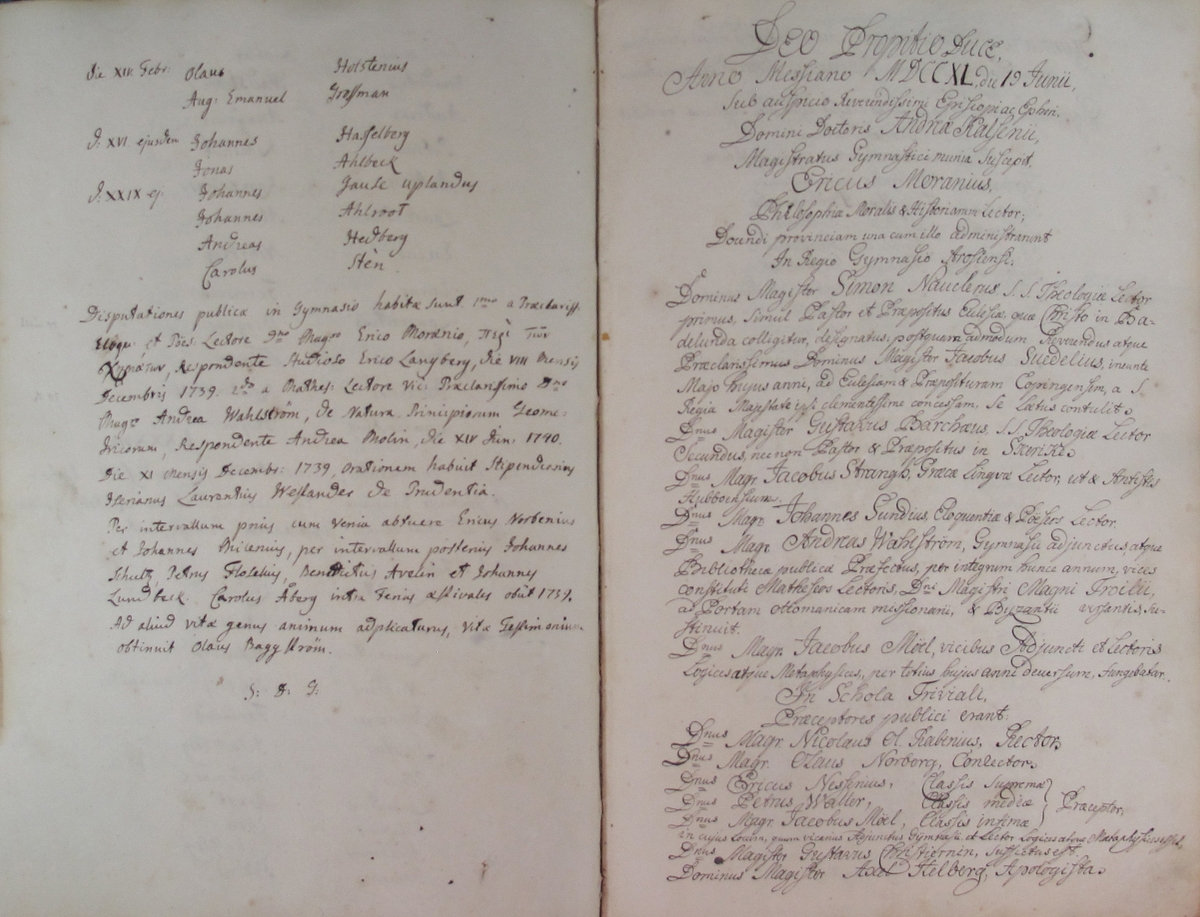 die XIV. Febr. Olaus Holstenius
Aug: Emanuel Grosman
d: XVI ejusdem Johannes Hasselberg
Jonas Ahlbeck
d: XXIX ej. Johannes Gause Uplandus
Johannes Ahlroot
Andreas Hedberg
Carolus Stén
Disputationes publicæ in Gymnasio habitæ sunt 1mo a Præclariss.
Eloqu: et Poës Lectore Dno Magro Erico Moranio, περὶ τῶν
Respondente Studioso Erico Langberg, die VIII mensis
Decembris 1739. 2do a Mathes: Lectore Vic: Præclarissimo Dno
Magro Andrea Wahlström, de Natura Principiorum Geome-
tricorum, Respondente Andrea Molin, die XIV Jun. 1740.
Die XI mensis Decembr: 1739, Orationem habuit Stipendiarius
Ilerianus Laurentius Weslander de Prudentia.
Per intervallum prius cum venia abfuere Ericus Norbenius
et Johannes per intervallum posterius Johannes
Schultz, Petrus Benedictus Avelin et Johannes
Lundbeck. Carolus Åberg intra Ferias æstivales obiit 1739.
Ad aliud vitæ genus animum adplicaturus, vitæ Testimonium
obtinuit Olaus Baggström.
S: D: G:
Deo Propitio Duce,
Anno Messiano MDCCXL, die 19 Junii,
Sub auspicio Reverendissimi Episcopi ac Ephori,
Domini Doctoris Andreæ Kalsenii,
Magistratus Gymnastici munia suscepit,
Ericus Moranius,
Philosophiæ Moralis & Historiarum Lector;
Docendi provinciam una cum illo administrarunt
In Regio Gymnasio Arosiensi:
Dominus Magister Simon Nauclerus S. S. Theologiæ Lector
primus, simul Pastor et Præpositus Ecclesiæ, quæ Christo in Ba-
delunda colligitur, designatus, postquam admodum Reverendus atque
Præclarissimus Dominus Magister Jacobus Suedelius, ineunte
Majo hujus anni, ad Ecclesiam & Præposituram Copingensem, a S.
Regia Majestate ipsi clementissime concessam, se lætus contulit.
Dnus Magister Gustavus Barchæus, S. S. Theologiæ Lector
Secundus, nec non Pastor & Præpositus in Skerike.
Dnus Magr. Jacobus Strangh, Græcæ Linguæ Lector, ut & Antistes
Hubboensium.
Dnus Magr. Johannes Sundius, Eloquentiæ & Poëseos Lector.
Dnus Magr. Andreas Wahlström, Gymnasii adjunctus, atque
Bibliothecæ publicæ Præfectus, per integrum hunce annum, vices
constituti Matheseos Lectoris, Dni Magistri Magni Troilii,
ad Portam ottomanicam missionarii, & Byzantii versantis, su-
stinuit.
Dnus Magr. Jacobus Möel, vicibus Adjuncti et Lectoris
Logices atque Metaphysices, per totius hujus anni decursum, fungebatur.
In Schola Triviali,
Præceptores publici erant:
Dnus Magr. Nicolaus Ol. Rabenius, Rector.
Dnus Magr. Olaus Norborg, Conrector.
Dnus Ericus Nessenius, Classis supremæ
Dnus Petrus Waller, Classis mediæ Præceptor,
Dnus Magr. Jacobus Möel, Classis infimæ
in cujus locum, quum vicarius Adjunctus Gymnasii et Lector Logices atque Metaphysices esset,
Dnus Magister Gustavus Christiernin, suffectus est.
Dominus Magister Axel Helberg, Apologista.